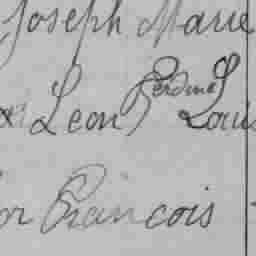 Joseph Marie
Leon Ferdine Louis
or Francois